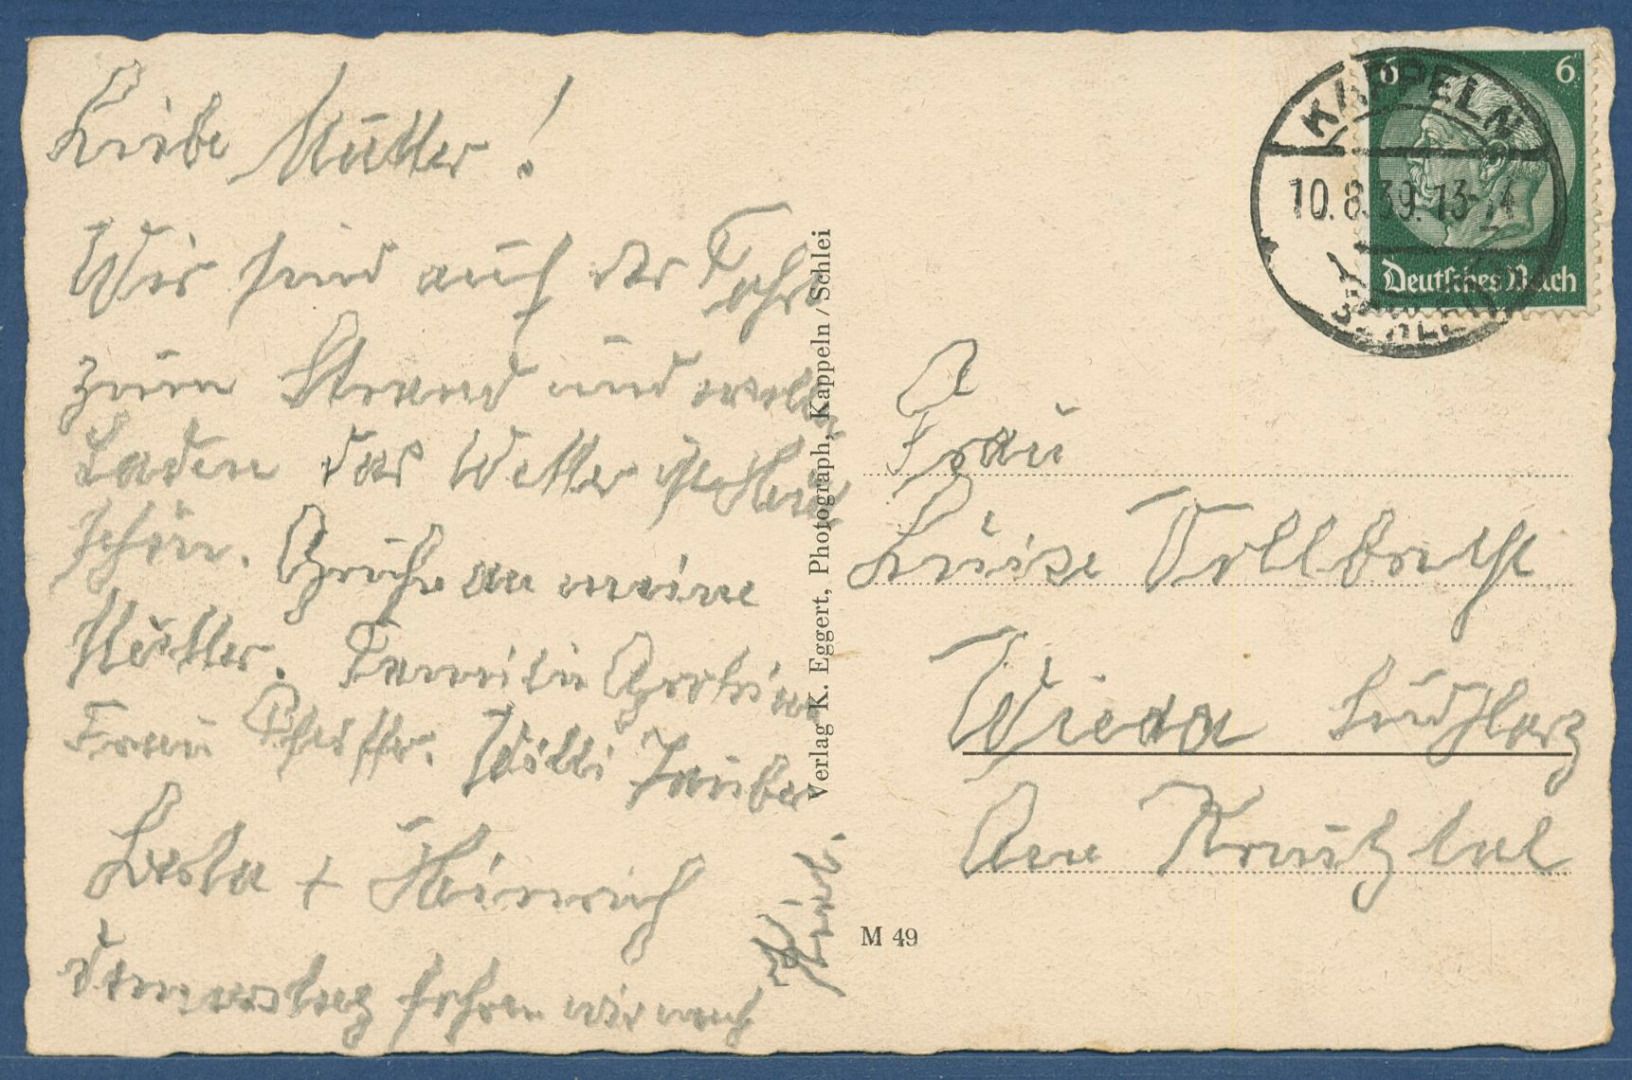 Liebe Mutter!
Wir sind auf der Fahrt
zum Strand und
Baden das Wetter ist
schön. Grüße an meine
Mutter. Familie
Frau Pfeiffer. Willi
+ Heinrich
Donnerstag fahren wir nach
Kiel
Verlag K. Eggert, Photograph, Kappeln / Schlei
M 49
KAPPELN
10.8.39.13-14
SCHLEI
6 6
Deutsches Reich
Frau
Luise Vollbrecht
Wieda Südharz
Am Kreuztal